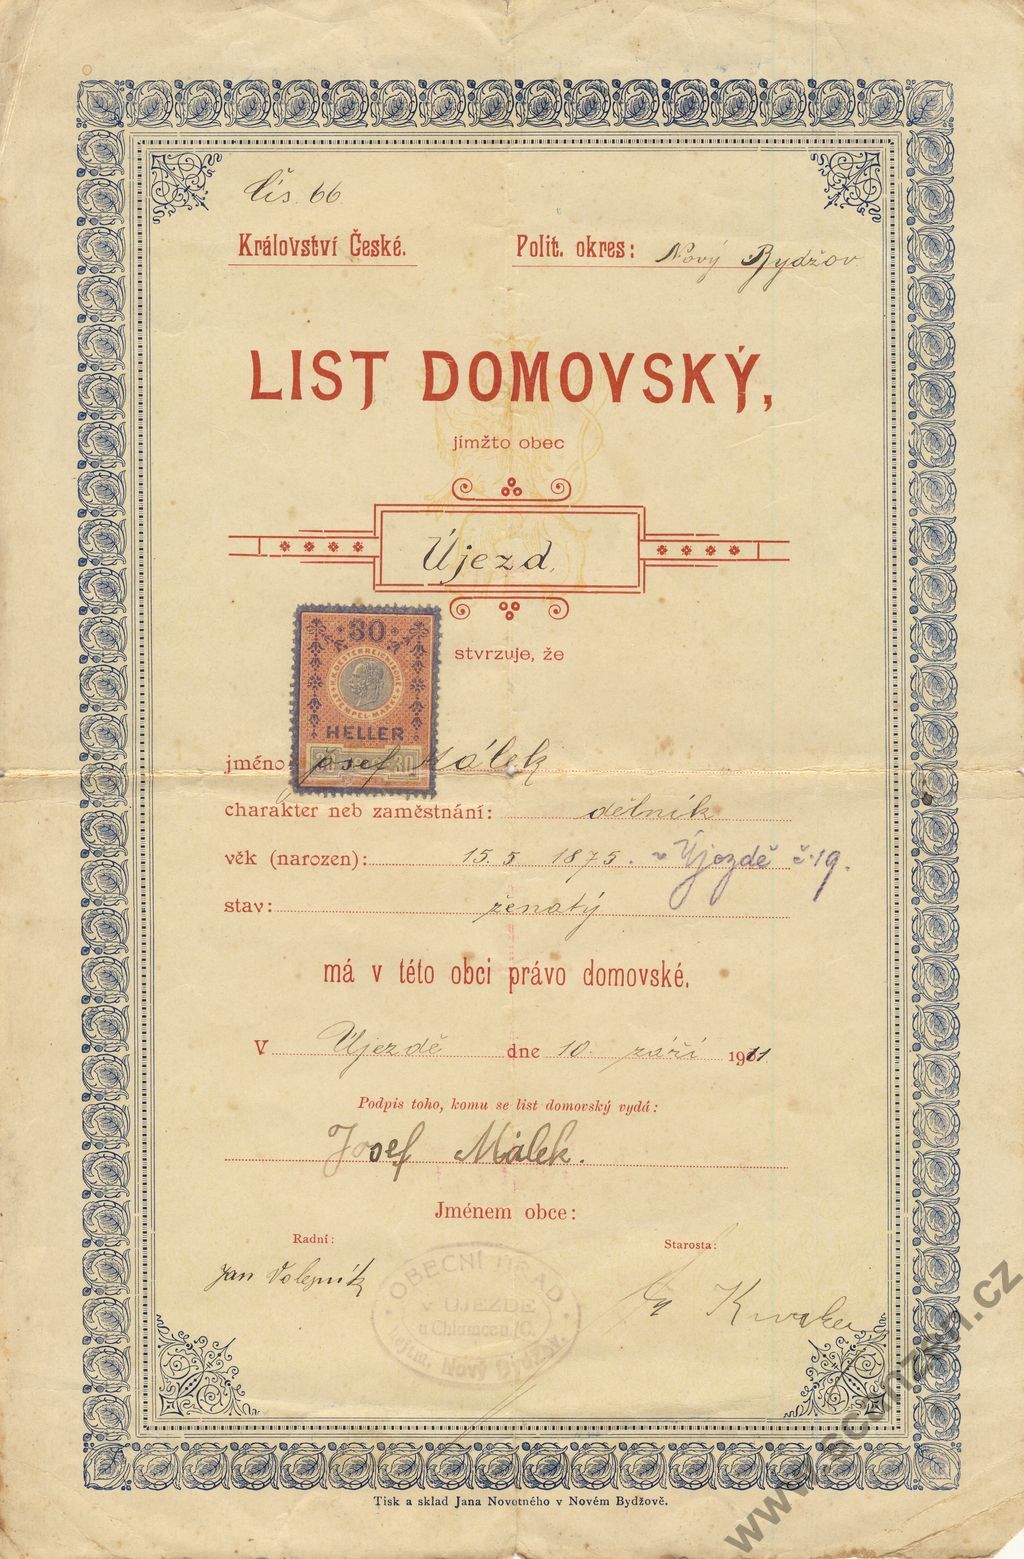 Čís. 66
Království České.
Polit. okres: Nový Bydžov
LIST DOMOVSKÝ,
jímžto obec
Újezd.
stvrzuje, že
30
K.K. OESTERREICHISCHE
STEMPEL-MARKE
HELLER
30
jméno Josef Málek
charakter neb zaměstnání: dělník
věk (narozen): 15. 5. 1875. v Újezdě č. 19.
stav: ženatý
má v této obci právo domovské.
V Újezdě dne 10. září 1911
Podpis toho, komu se list domovský vydá:
Josef Málek.
Jménem obce:
Radní:
Starosta:
Jan Volejník
OBECNÍ ÚŘAD
V ÚJEZDĚ
u Chlumce n./C.
hejtm. Nový Bydžov.
Tisk a sklad Jana Novotného v Novém Bydžově.